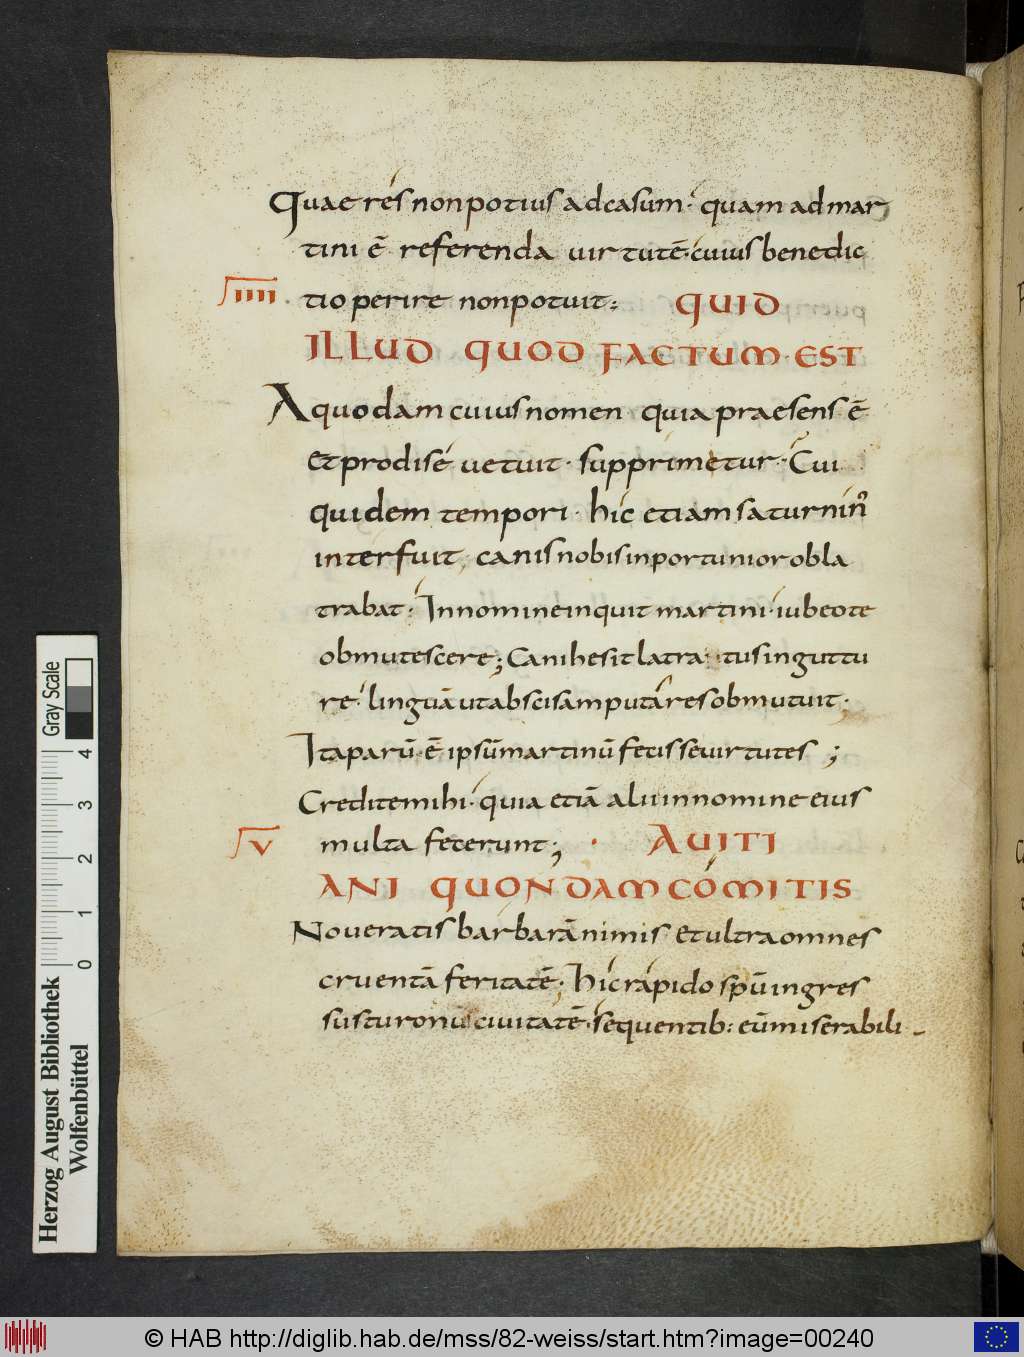 Quae res non potius ad casum· quam ad mar
tini ē referenda virtutē· cuius benedic
IIII · tio perire non potuit: QUID
ILLUD QUOD FACTUM EST
A quodam cuius nomen quia praesens ē
et prodi se uetuit· supprimetur· Cui
quidem tempori· hic etiam saturnin
interfuit, canis nobis inportunior obla
trabat· In nomine inquit martini· iubeo te
obmutescere; Cani hesit latra tus in guttu
re· linguā ut abscisam putares obmutuit;
Ita parū· ē ipsū martinū fecisse virtutes ;
Credite mihi· quia etiā alii in nomine eius
V multa fecerunt; · AUITI
ANI QUONDAM COMITIS
Noueratis barbarā nimis et ultra omnes
cruentā feritatē· Hic rapido spū ingres
sus turonū civitatē· sequentib: eū miserabili -
Herzog August Bibliothek
Wolfenbüttel
0 1 2 3 4
Gray Scale
© HAB http://diglib.hab.de/mss/82-weiss/start.htm?image=00240